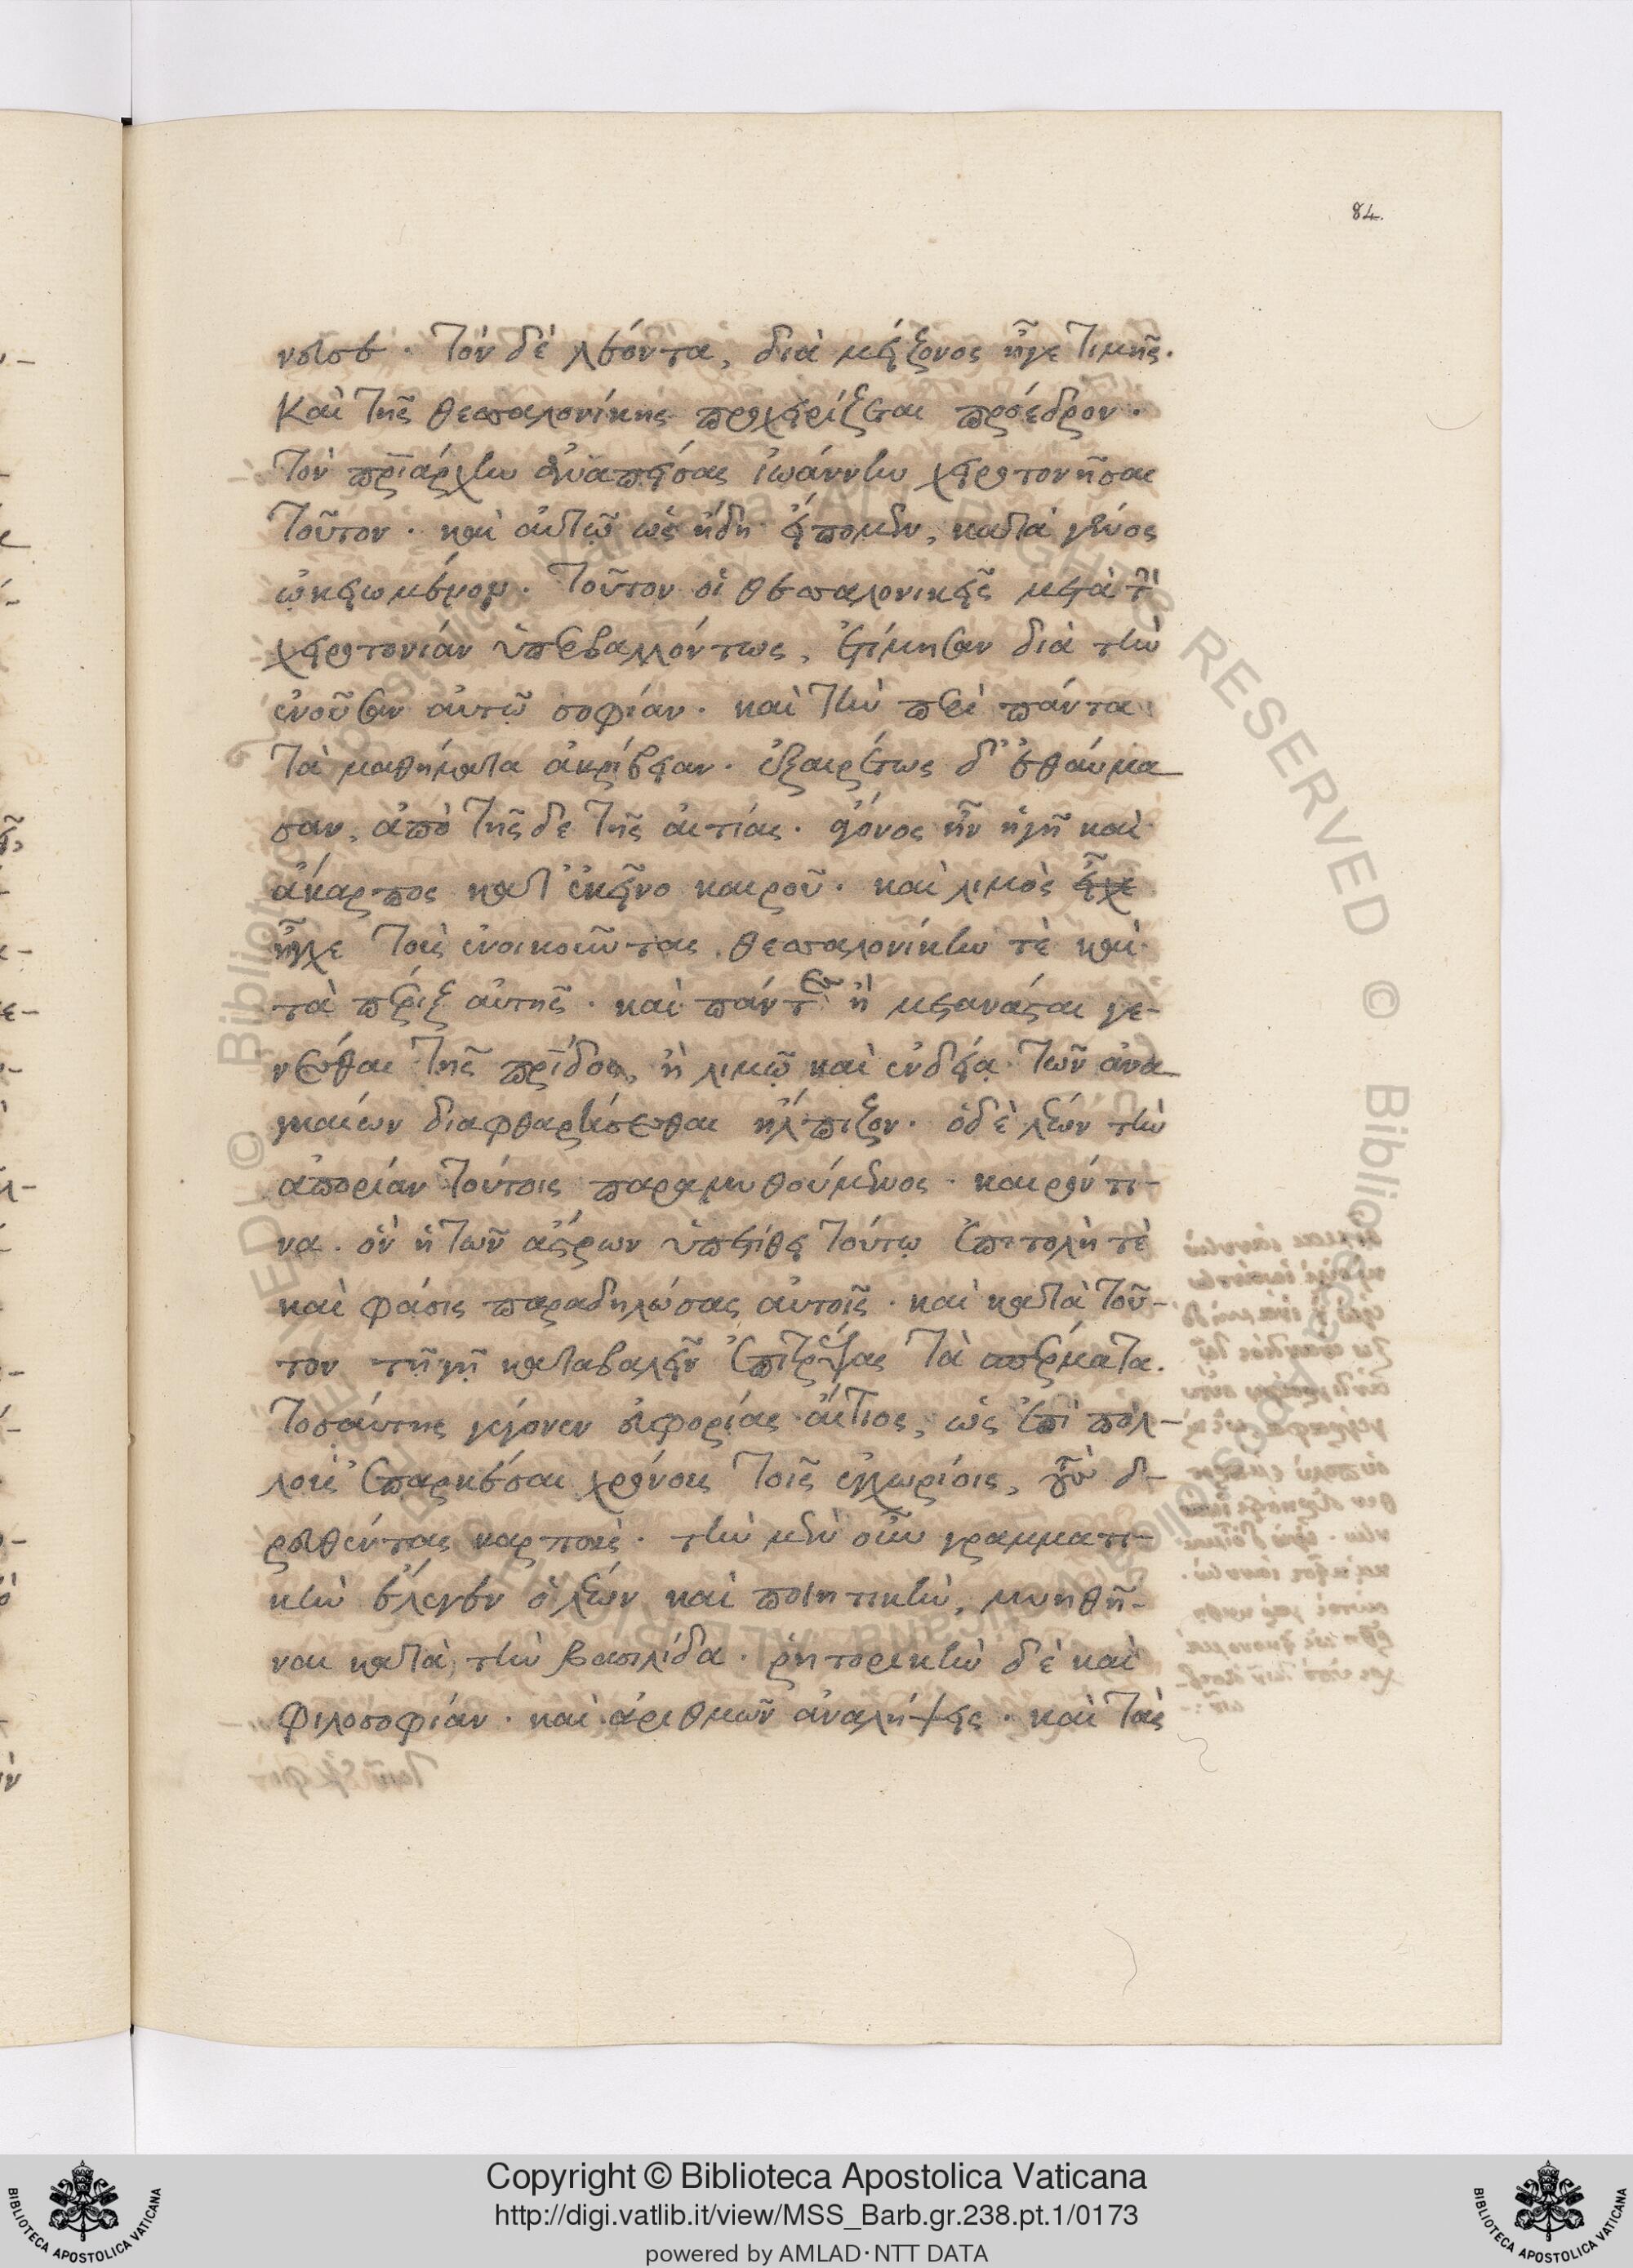 84.
νοισε. Τὸν δὲ λέοντα, διὰ μείζονος ἦγε τιμῆς.
καὶ τῆς θεσσαλονίκης προχειρίζεται πρόεδρον.
τὸν πριάρχην ἀναπείσας ἰωάννην χειροτονῆσαι
τοῦτον. καὶ αὐτῷ ὡς ἤδη εἴπομεν, κατὰ γένος
ᾠκειωμένον. Τοῦτον οἱ θεσσαλονικεῖς μετὰ τὴν
χειροτονίαν ὑπερβαλλόντως, ἐτίμησαν διὰ τὴν
ἐνοῦσαν αὐτῷ σοφίαν. καὶ τὴν περὶ πάντα
τὰ μαθήματα ἀκρίβειαν. ἐξαιρέτως δ' ἐθαύμα
σαν, ἀπὸ τῆς δε τῆς αἰτίας. ἄγονος ἦν ἡ γῆ καὶ
ἄκαρπος κατ' ἐκεῖνο καιροῦ. καὶ λιμὸς εἶχε
ἦγχε τοὺς ἐνοικοῦντας θεσσαλονίκην τὲ καὶ
τὰ πέριξ αὐτῆς. καὶ πάντες ἢ μετανάσται γε-
νέσθαι τῆς πρίδος, ἢ λιμῷ καὶ ἐνδείᾳ τῶν ἀνα
γκαίων διαφθαρήσεσθαι ἤλπιζον. ὁ δὲ λέων τὴν
ἀπορίαν τούτοις παραμυθούμενος. καιρόν τι-
να. ὃν ἡ τῶν ἄστρων ὑπετίθει τούτῳ ἐπιτολή τὲ
καὶ φάσις παραδηλώσας αὐτοῖς. καὶ κατὰ τοῦ-
τον τῇ γῇ καταβαλεῖν ἐπιτρέψας τὰ σπέρματα.
Τοσαύτης γέγονεν εὐφορίας αἴτιος, ὡς ἐπὶ πολ-
λοῖς ἐπαρκέσαι χρόνοις τοῖς ἐγχωρίοις, τοὺς εὑ-
ρεθέντας καρπούς. τὴν μὲν οὖν γραμματι-
κὴν ἔλεγεν ὁ λέων καὶ ποιητικὴν, μυηθῆ-
ναι κατὰ τὴν βασιλίδα. ῥητορικὴν δὲ καὶ
φιλοσοφίαν. καὶ ἀριθμῶν ἀναλήψεις. καὶ τὰς
Copyright © Biblioteca Apostolica Vaticana
http://digi.vatlib.it/view/MSS_Barb.gr.238.pt.1/0173
powered by AMLAD·NTT DATA
BIBLIOTECA APOSTOLICA VATICANA
BIBLIOTECA APOSTOLICA VATICANA